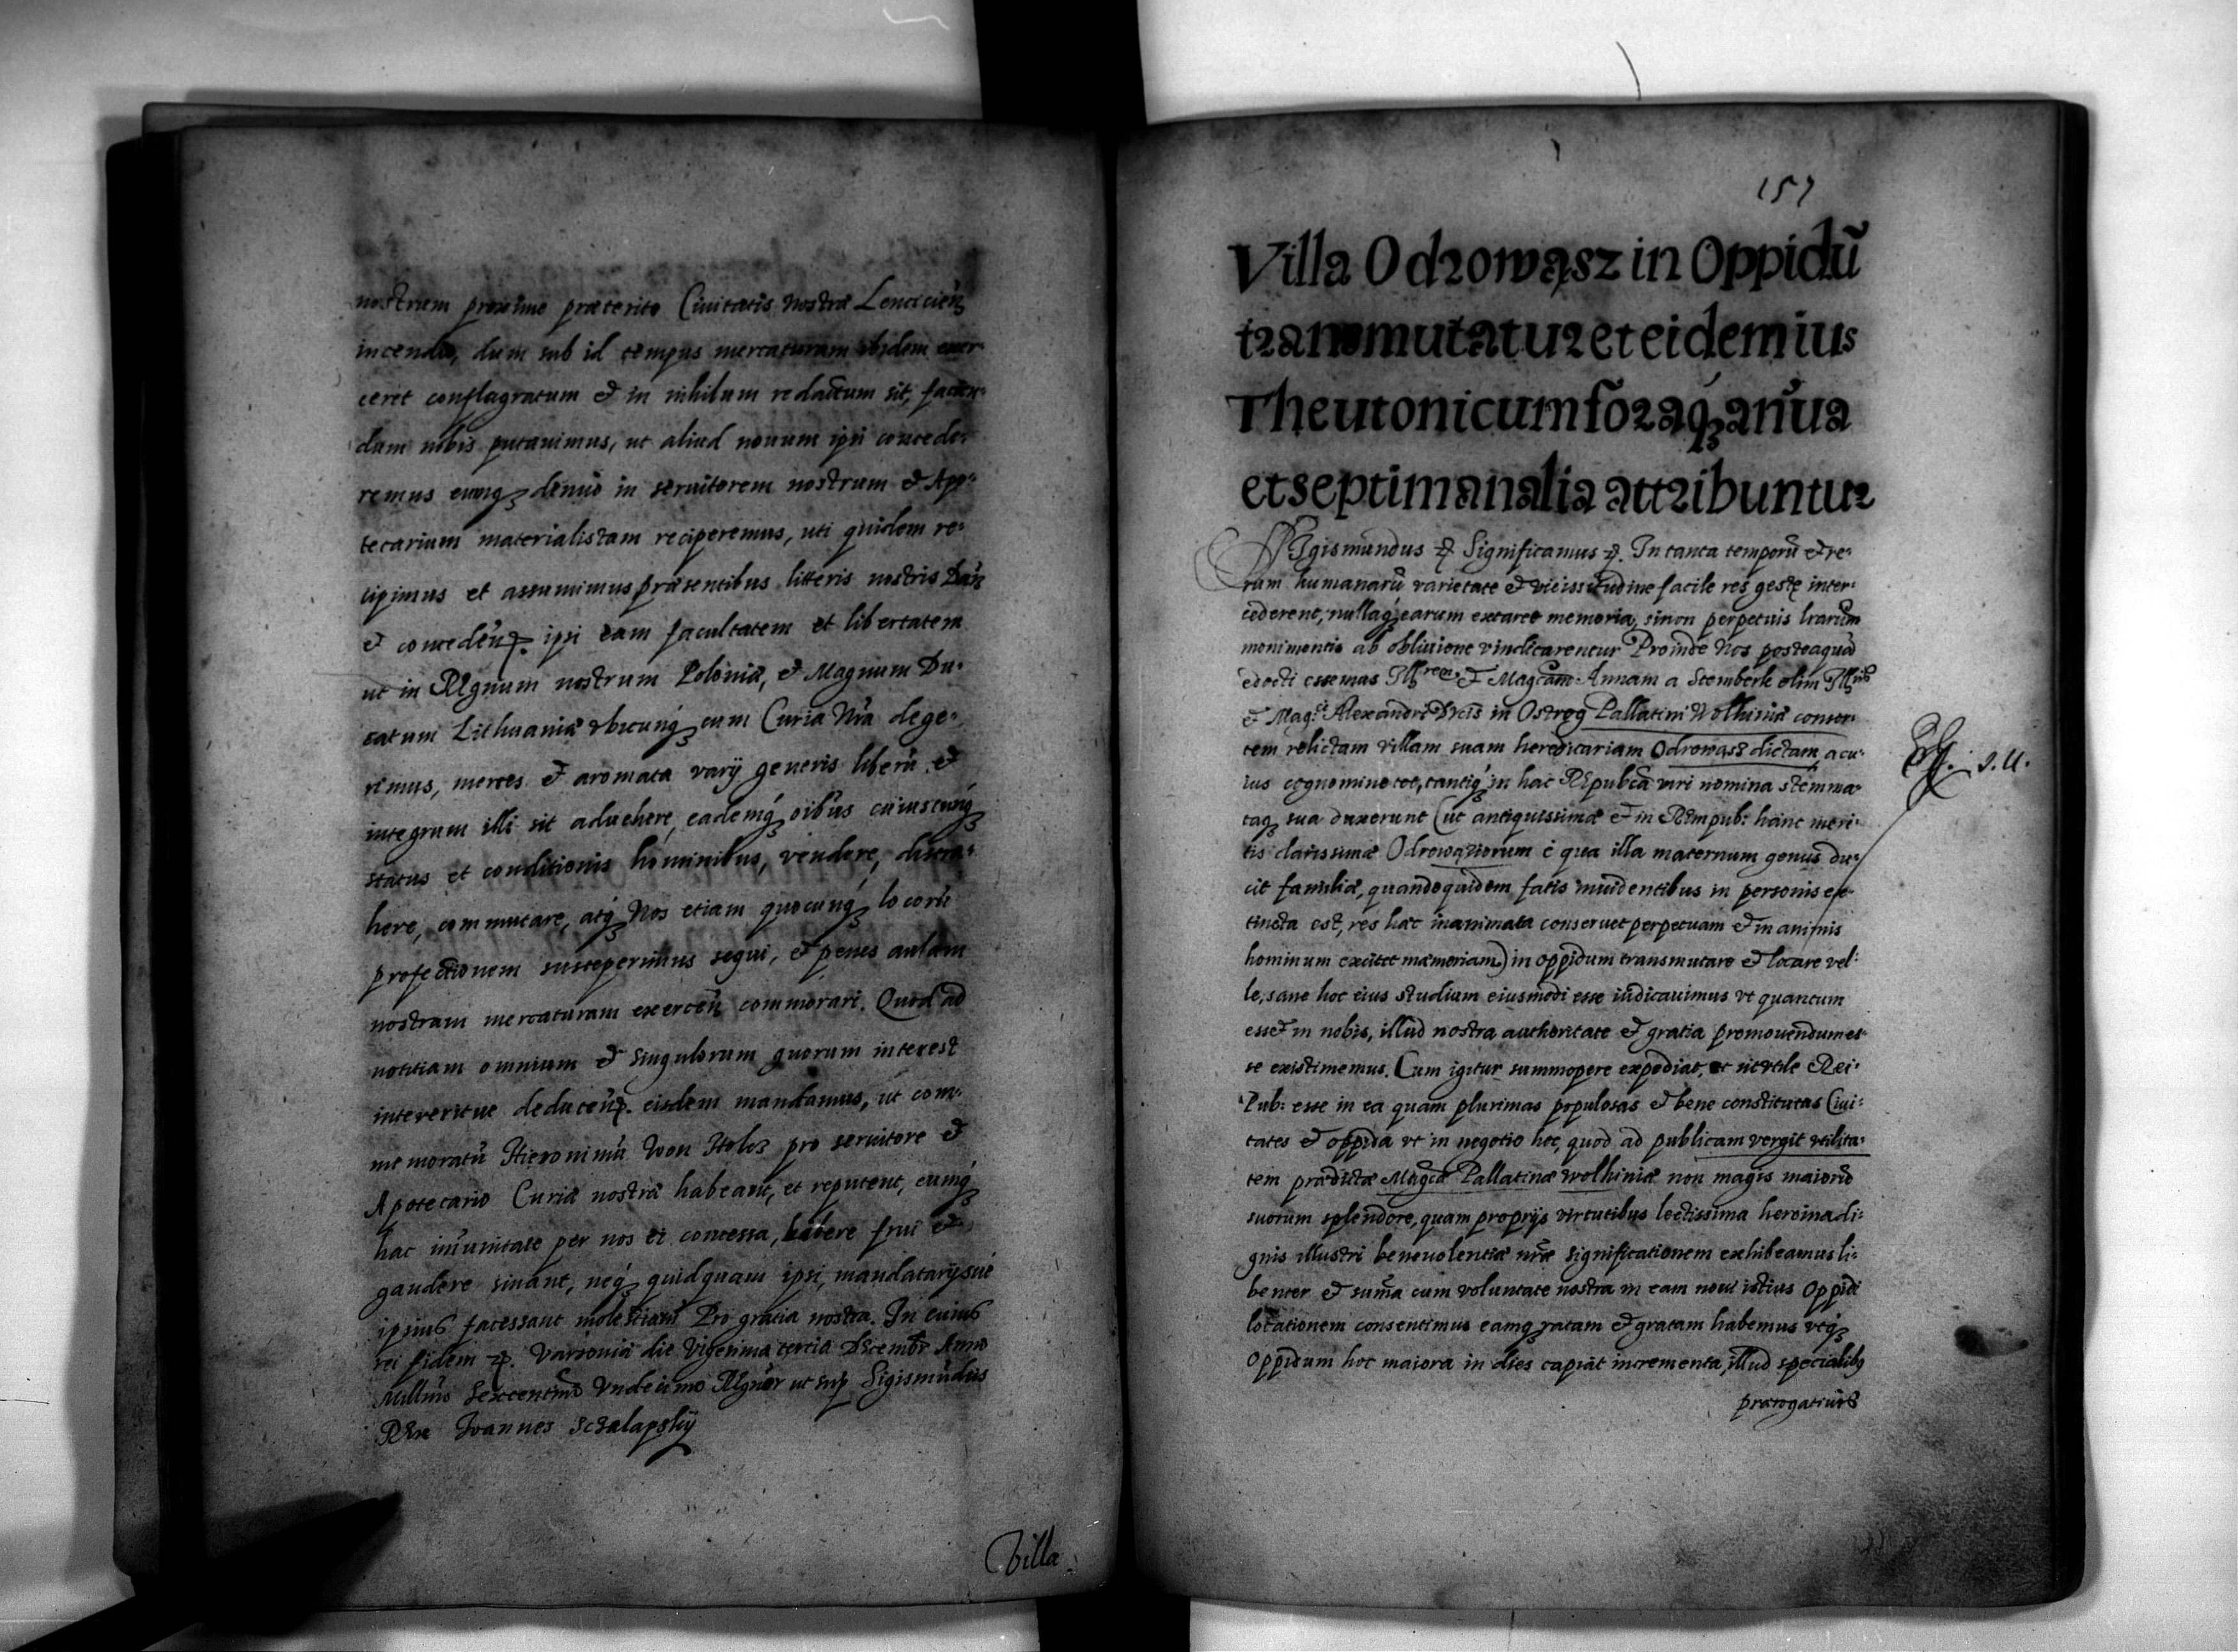 nostrum proxime præterito Civitatis nostræ Lenciciēn
incendio, dum sub id tempus mercaturam ibidem exer-
ceret conflagratum & in nihilum redactum sit, facien-
dum nobis putavimus, ut aliud novum ipsi concede-
remus eumq; denuò in servitorem nostrum & Apo-
tecarium materialistam reciperemus, uti quidem re-
cipimus et assumimus præsentibus litteris nostris Dan
& conceden. ipsi eam facultatem et libertatem
ut in Regnum nostrum Poloniæ, & Magnum Du-
catum Lithuaniæ ubicunq; cum Curia Nra dege-
remus, merces & aromata varij generis liberū &
integrum illi sit aduehere, eademq; oibus cuiuscunq;
status et conditionis hominibus, vendere, distra-
here, commutare, atq; Nos etiam quocunq; locorū
profectionem susceperimus sequi, & penes aulam
nostram mercaturam exercen commorari. Quod ad
notitiam omnium & singulorum quorum interest
intereritue deducen. eisdem mandamus, ut com-
memoratū Hieronimū Won Holos pro servitore &
Apotecario Curiæ nostræ habeant, et reputent, eumq;
hac imunitate per nos ei concessa, habere frui &
gaudere sinant, neq; quidquam ipsi, mandatarijsue
ipsius facessant molestiam Pro gratia nostra. In cuius
rei fidem. Varsoviæ die Vigesima tercia Decembr Anno
Millmo Sexcentmo Undecimo Regnor ut sup Sigismūdus
Rex Joannes Sczalapskÿ
Villa
157
Villa Odrowąsz in Oppidū
transmutatur et eidem ius
Theutonicum foraq; añua
et septimanalia attribuntur
Sigismundus Significamus. In tanta temporū & re-
rum humanarū varietate & vicissitudine facile res gestę inter-
cederent, nullaq; earum extaret memoria, si non perpetuis lrarum
monimentis ab oblivione vindicarentur Proinde Nos posteaquā
edocti essemus Illrem & Magcam Annam a Stemberk olim Illris
& Mag. Alexandri Ducis in Ostrog Pallatini Wolhiniæ consor-
tem relictam villam suam hereditariam Odrowasz dictam, a cu-
ius cognomine tot, tantiq; in hac Repubca viri nomina stemma-
taq; sua duxerunt (ut antiquissimæ & in Rempub: hanc meri-
tis clarissimæ Odrowaziorum è qua illa maternum genus du-
cit familiæ, quandoquidem fatis invidentibus in personis ex-
tincta est, res hæc inanimata conservet perpetuam & in animis
hominum excitet mæmoriam) in oppidum transmutare & locare vel-
le, sane hoc eius studium eiusmodi esse iudicavimus vt quantum
esset in nobis, illud nostra authoritate & gratia promovendum es-
se existimemus. Cum igitur summopere expediat, et sit vtile Rei-
Pub: esse in ea quam plurimas populosas & bene constitutas Civi-
tates & oppida vt in negotio hoc, quod ad publicam vergit vtilita-
tem prædictæ Magcæ Pallatinæ Wolhiniæ non magis maiorū
suorum splendore, quam proprijs virtutibus lectissima heroina di-
gnis illustri benevolentiæ nræ significationem exhibeamus li-
benter & suma cum voluntate nostra in eam novi istius Oppidi
locationem consentimus eamq; ratam & gratam habemus vtq;
Oppidum hoc maiora in dies capiat incrementa, illud specialibq
prærogativis